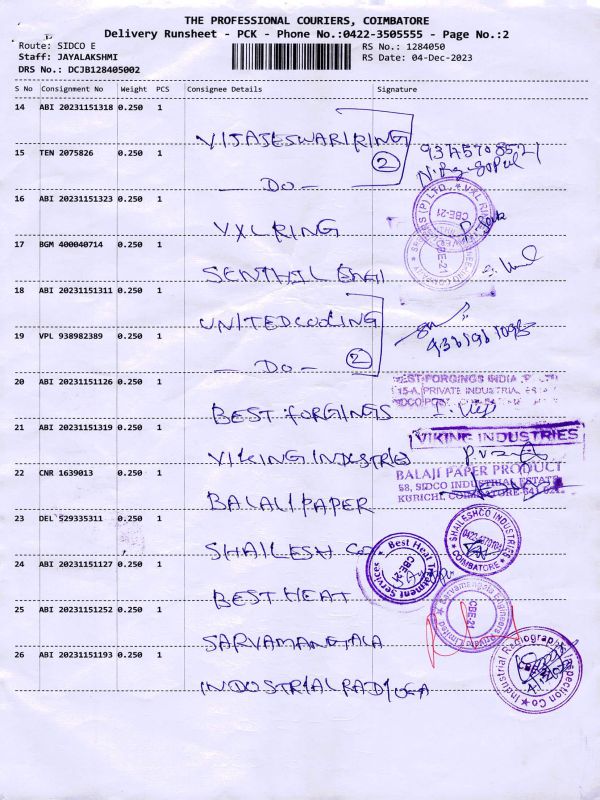 THE PROFESSIONAL COURIERS, COIMBATORE
Delivery Runsheet - PCK - Phone No.:0422-3505555 - Page No.:2
Route: SIDCO E
RS No.: 1284050
Staff: JAYALAKSHMI
RS Date: 04-Dec-2023
DRS No.: DCJB128405002
S No Consignment No Weight PCS Consignee Details Signature
14 ABI 20231151318 0.250 1
VIJAJESWARI RING
15 TEN 2075826 0.250 1
2
— DO —
16 ABI 20231151323 0.250 1
VXL RING
CBE-21
17 BGM 400040714 0.250 1
SENTHIL ENGI
18 ABI 20231151311 0.250 1
UNITED COOLING
19 VPL 938982389 0.250 1
2
— DO —
20 ABI 20231151126 0.250 1
BEST FORGINGS INDIA
BEST FORGINGS
21 ABI 20231151319 0.250 1
VIKING INDUSTRIES
VIKING INDUSTRIE
22 CNR 1639013 0.250 1
BALAJI PAPER PRODUCT
58, SIDCO INDUSTRIAL ESTATE
KURICHI, COIMBATORE-641 021.
BALALI PAPER
23 DEL 529335311 0.250 1
SHAILESHCO INDUSTRIES
COIMBATORE
SHAILESH CO
24 ABI 20231151127 0.250 1
Best Heat Treatment Services
BEST HEAT
25 ABI 20231151252 0.250 1
CBE-21
SARVAMANGALA
26 ABI 20231151193 0.250 1
Industrial Radiography Inspection Co
INDUSTRIAL RADIOGA